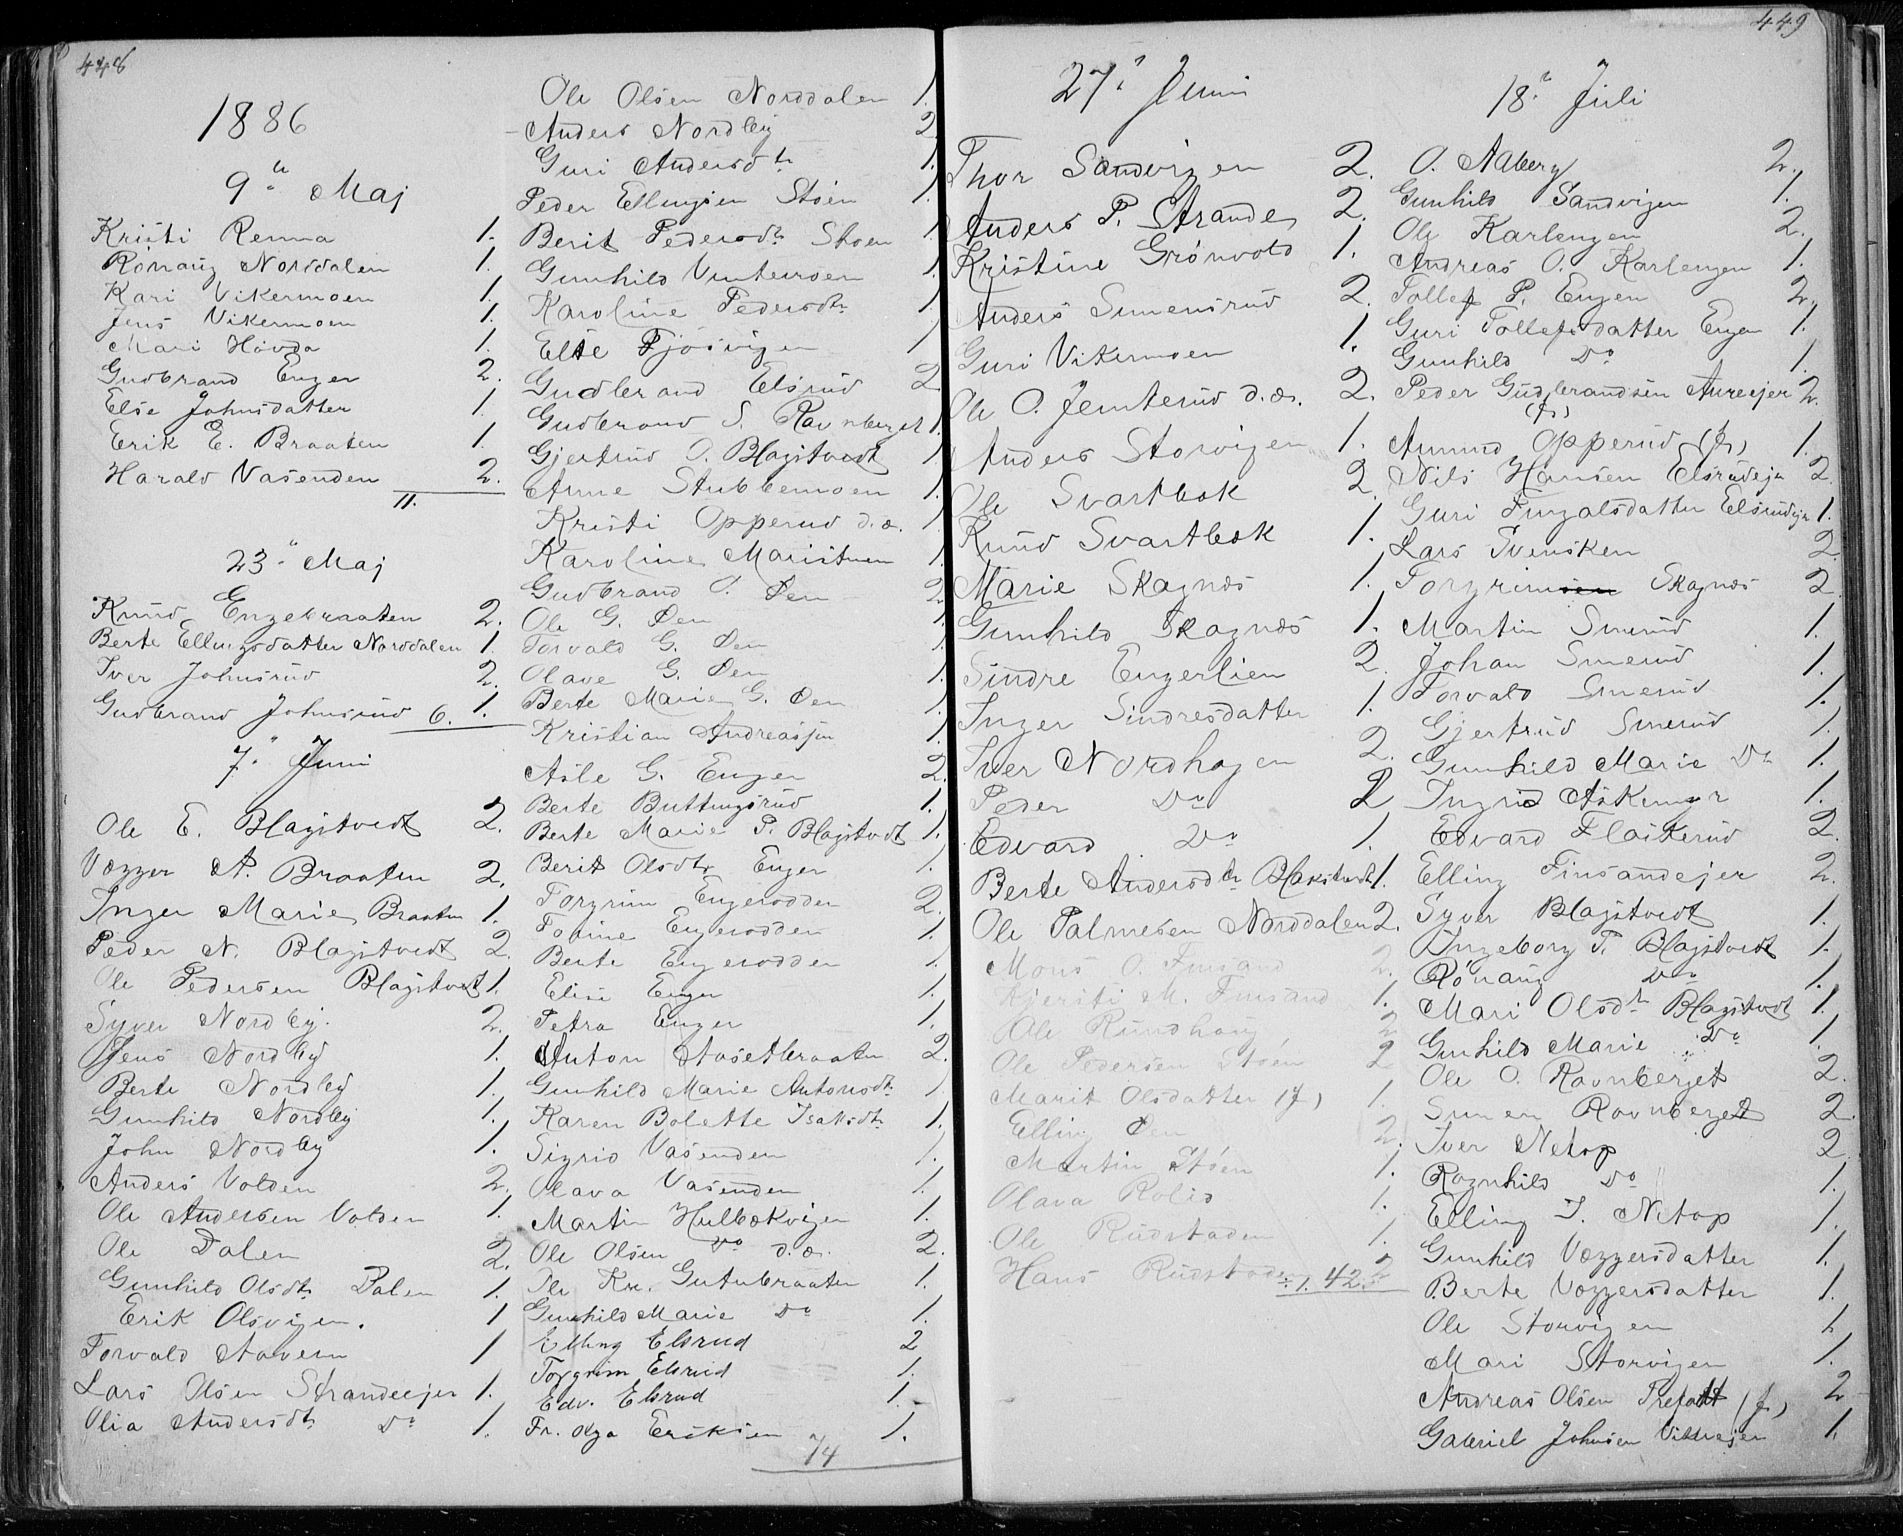 448
1886
9de Maj
Kristi Renna 1.
Rønaug Norddalen 1.
Kari Vikermoen 1.
Jens Vikermoen 1.
Mari Hovda 1.
Gudbrand Enger 2.
Else Johnsdatter 1.
Erik E. Braaten 1.
Harald Vasenden 2.
11.
23. Maj
Knud Engebraaten 2.
Berte Ellingsdatter Norddalen 1.
Iver Johnsrud 2.
Gudbrand Johnsrud 6. 1.
7. Juni
Ole E. Blagstvedt 2.
Vegger A. Braaten 2.
Inger Marie Braaten 1.
Peder N. Blagstvedt 2.
Ole Pedersen Blagstvedt 1.
Syver Nordby. 2.
Jens Nordby 1.
Berte Nordby 1.
Gunhild Nordby 1.
John Nordby 1.
Anders Volden 2.
Ole Andersen Volden 1.
Ole Dalen 2.
Gunhild Olsdtr Dalen 1.
Erik Olsvigen. 1
Torvald Stavern 1
Lars Olsen Strandeejer 1.
Olia Andersdtr Do 1.
Ole Olsen Norddalen 1.
Anders Nordby 2
Guri Andersdtr 1.
Peder Ellingsen Støen 1.
Berit Pedersdtr Støen 1.
Gunhild Vintermoen 1.
Karoline Pedersdtr 1.
Else Fjøsvigen 1
Gudbrand Elsrud 2
Gudbrand S. Ravnberget 1.
Gjertrud O. Blagstvedt 1.
Anne Stubbemoen 1.
Kristi Opperud d.æ. 1.
Karoline Maristuen 1.
Gudbrand O. Øen 2
Ole G. Øen 1.
Torvald G. Øen 1.
Olave G. Øen 1.
Berte Marie G. Øen 1.
Kristian Andreassen 1.
Asle G. Enger 2.
Berte Buttingsrud 1.
Berte Marie P. Blagstvedt 1.
Berit Olsdtr Enger 1.
Torgrim Engerodden 2.
Tomine Engerodden 1.
Berte Engerodden 1.
Elise Enger 1.
Petra Enger 1.
Anton Aasetbraaten 2.
Gunhild Marie Antonsdtr 1.
Karen Bolette Isaksdtr 1.
Sigrid Vasenden 1.
Olava Vasenden 1.
Martin Hulbækvigen 1.
Ole Olsen Do d.æ. 2.
Ole Kr. Gutubraaten 1.
Gunhild Marie Do 1.
Elling Elsrud 2
Torgrim Elsrud 1.
Edv. Elsrud 1.
Fr. Olga Eriksen 1.
74
449
27de Juni
Thor Sandvigen 2.
Anders P. Strande 2.
Kristine Grønvold 1.
Anders Simensrud 2.
Guri Vikermoen 1.
Ole O. Jemterud d.æ. 2.
Anders Storvigen 1.
Ole Svartbæk 2.
Knud Svartbæk 1.
Marie Skagnæs 1.
Gunhild Skagnæs 1.
Sindre Engerlien 2.
Inger Sindresdatter 1.
Iver Nordhagen 2.
Peder Do 2
Edvard Do 1.
Berte Andersdtr Blakstvedt 1.
Ole Palmesen Norddalen 2.
Mons O. Finsand 2.
Kjersti M. Finsand 1.
Ole Rundhaug 2
Ole Pedersen Støen 2
Marit Olsdatter (f) 1.
Elling Øen 2.
Martin Støen 1.
Olava Rolid 1.
Ole Rudstaden 1.
Hans Rudstaden 2
÷ 1. 42.
18de Juli
O. Aaberg 2.
Gunhild Sandvigen 1.
Ole Karlengen 2.
Andreas O. Karlengen 1.
Tollef P. Engen 2.
Guri Tollefsdatter Engen 1.
Gunhild Do 1.
Peder Gudbrandsen Aureejer 2.
(f)
Amund Opperud (f) 1.
Nils Hansen Elsrudejer 2.
Guri Fingalsdatter Elsrudejer 1.
Lars Svensken 2
Torgrimsen Skagnæs 2
Martin Smerud 1.
Johan Smerud 1.
Torvald Smerud 1.
Gjertrud Smerud 1.
Gunhild Marie Do 1.
Ingrid Askeruger 1.
Edvard Flaskerud 2.
Elling Finsandejer 2.
Syver Blagstvedt 1.
Ingeborg P. Blagstvedt 1.
Rønaug Do 1.
Mari Olsdtr Blagstvedt 1.
Gunhild Marie Do 1.
Ole O. Ravnberget 2.
Simen Ravnberget 2.
Iver Netop 2
Ragnhild Do 1.
Elling I. Netop 1.
Gunhild Veggersdatter 1.
Berte Veggersdatter 1.
Ole Storvigen 1.
Mari Storvigen 1.
Andreas Olsen (f) 2
Gabriel Johnsen 1.